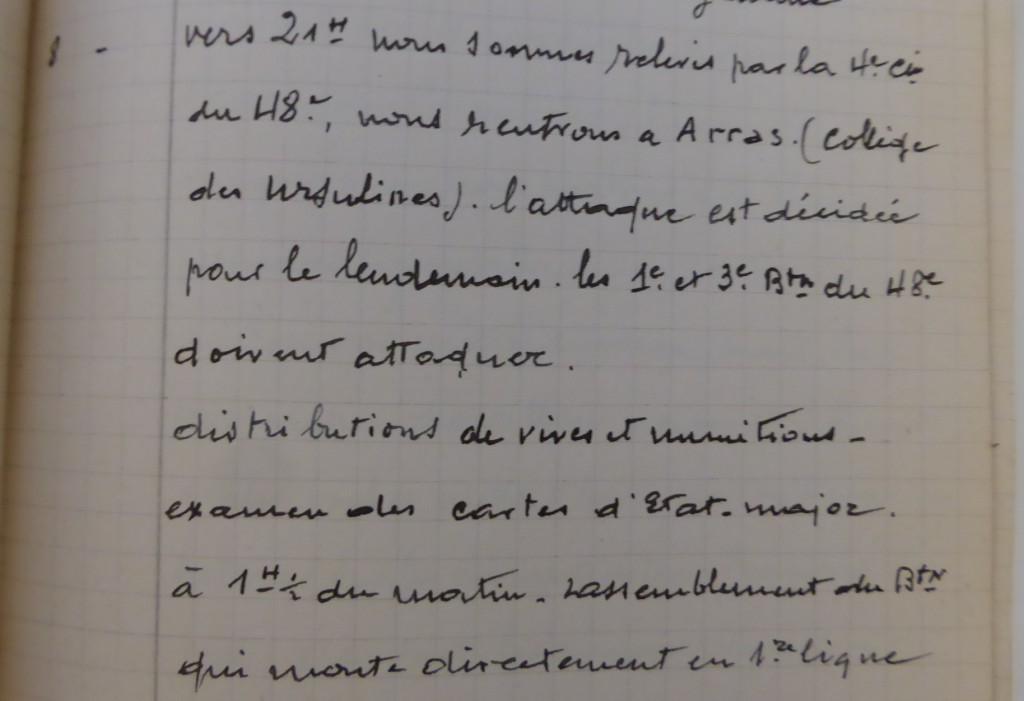 8 - vers 21H nous sommes relevés par la 4e Cie
du 48e, nous rentrons a Arras. (College
des Ursulines). l'attaque est décidée
pour le lendemain. les 1e et 3e Btn du 48e
doivent attaquer.
distributions de vives et munitions -
examen des cartes d'Etat-major.
à 1H 1/2 du matin. rassemblement du Btn
qui monte directement en 1re ligne